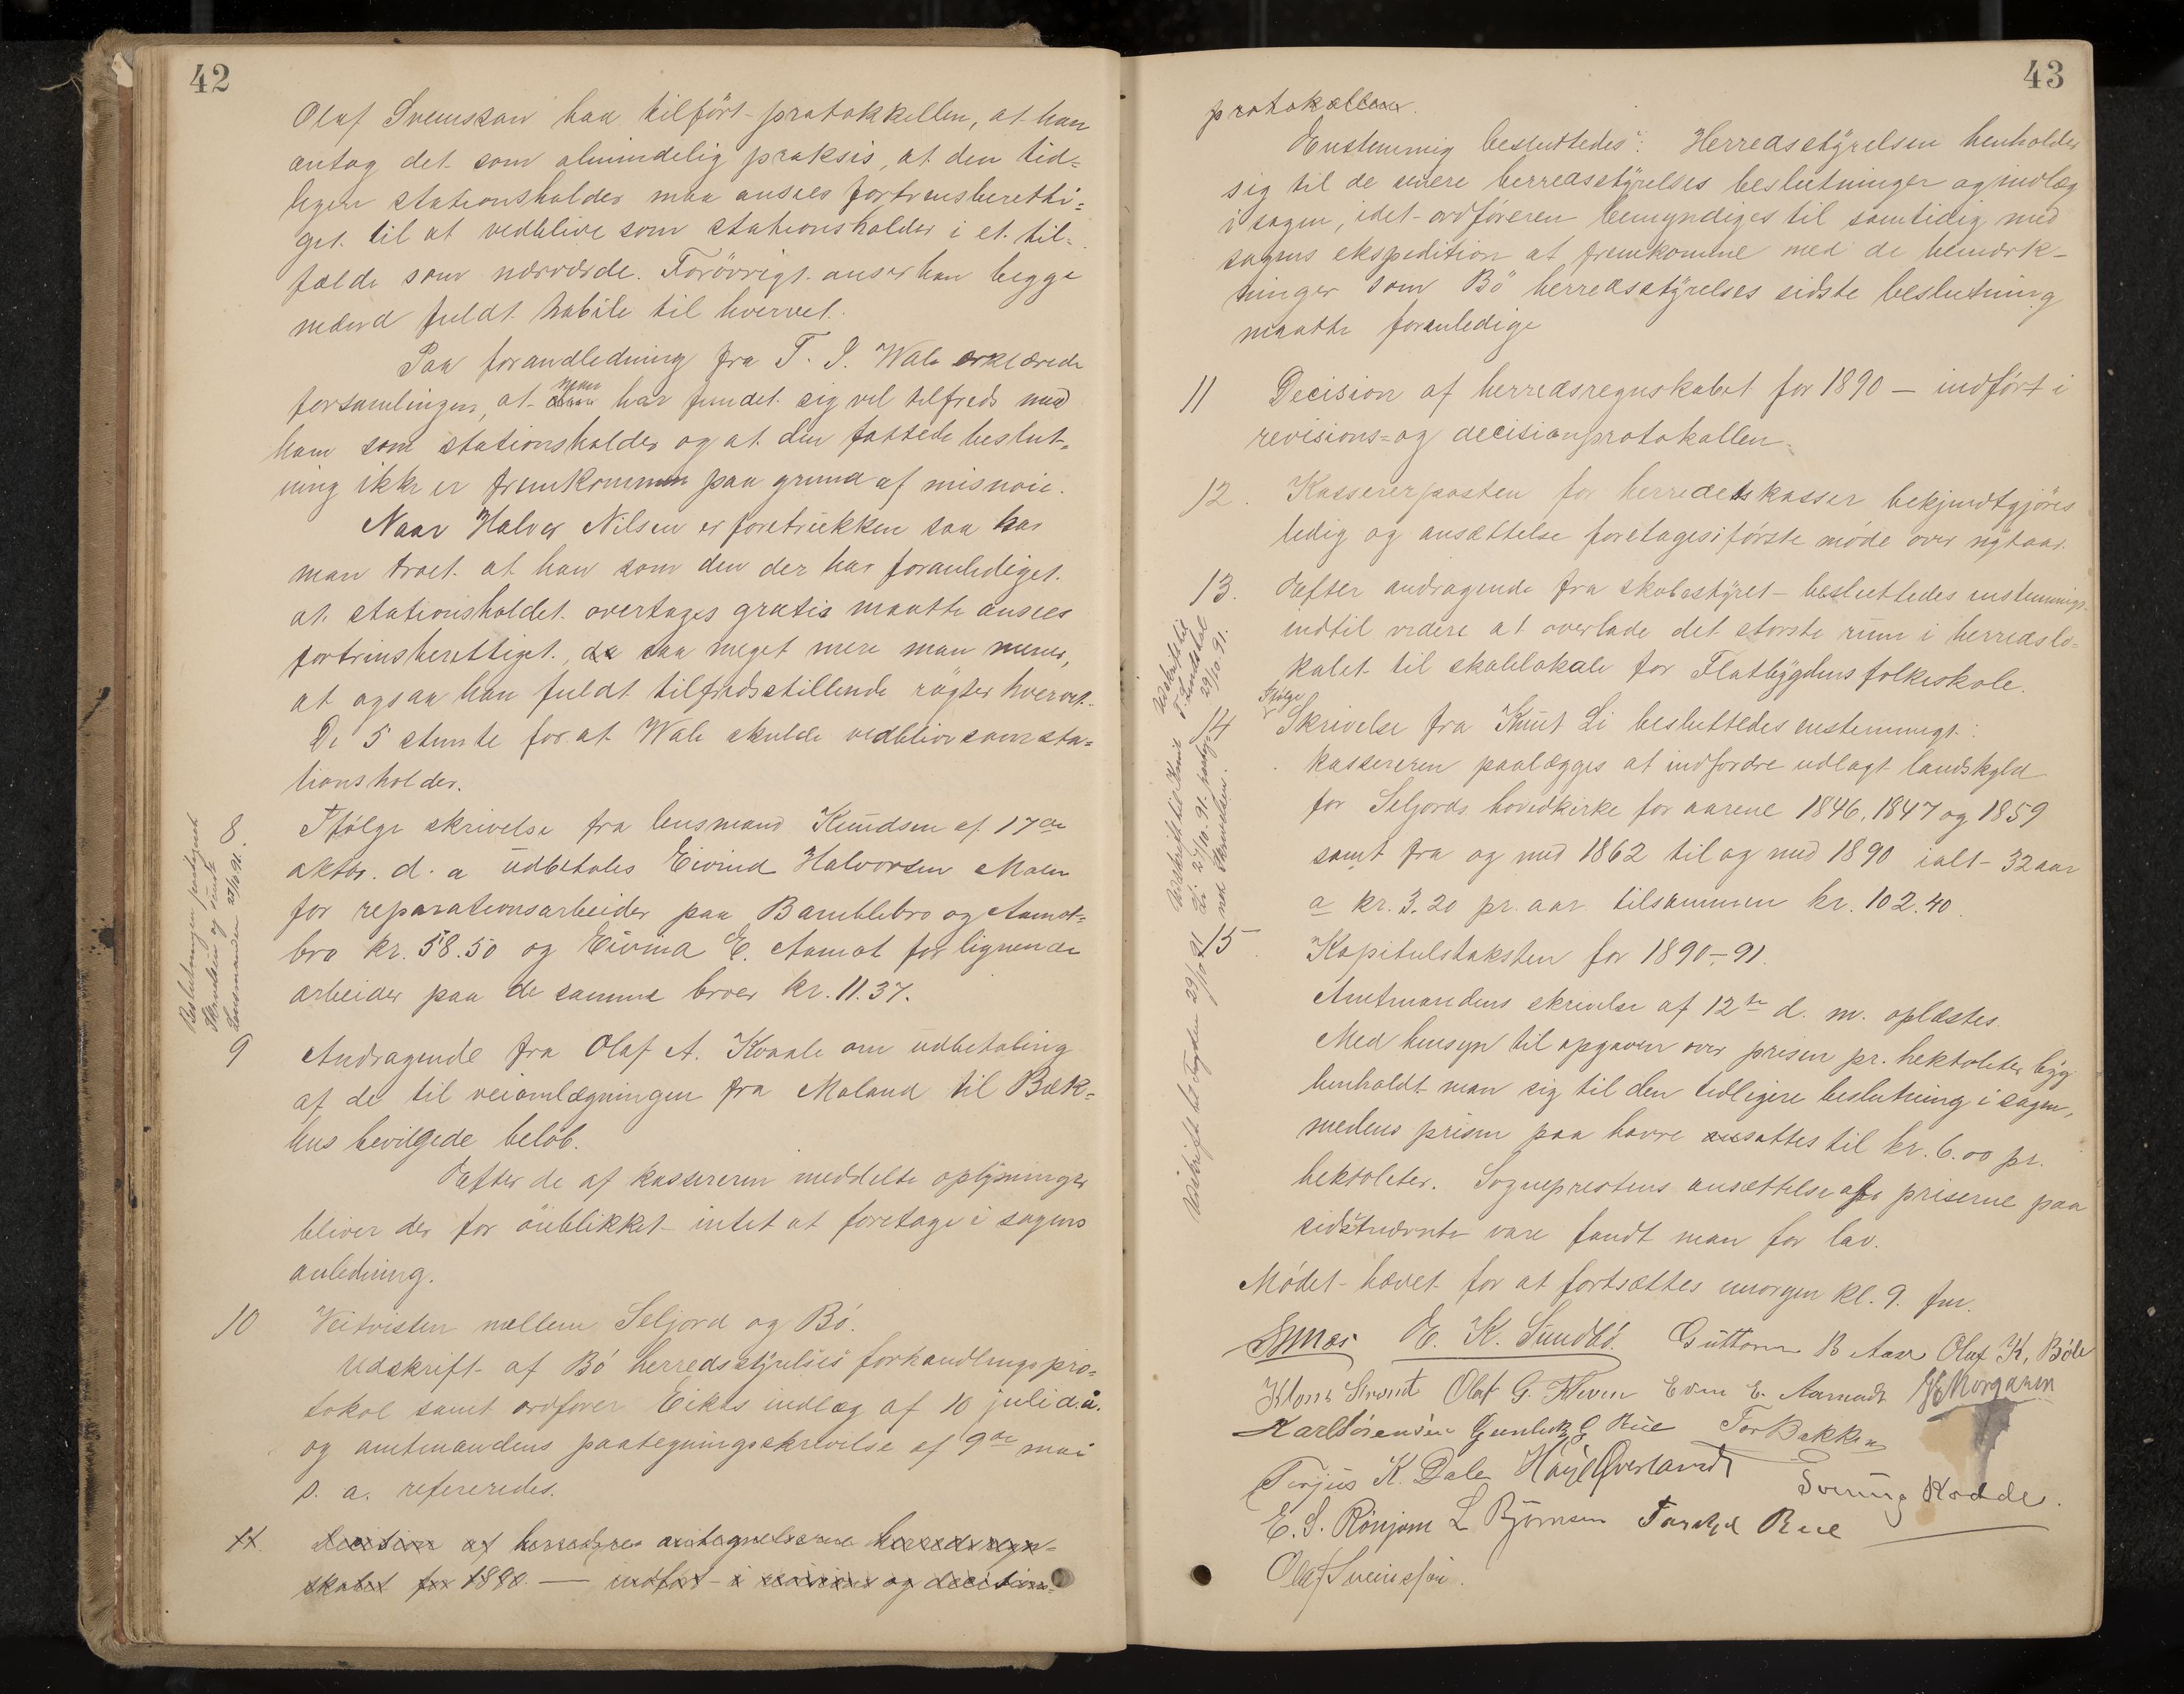 42
Olaf Sveinsson har tilført protokkellen, at han
antog det som almindelig praksis, at den tid=
ligere stationsholder maa ansees fortrinsberetti=
get til at vedblive som stationsholder i et til=
fælde som nærværde. Forøvrigt anser han begge
mænd fuldt habile til hvervet.
Paa forandledning fra T. J. Wale erklærede
forsamlingen, at man har fundet sig vel tilfreds med
ham som stationsholder og at den fattede beslut=
ning ikke er fremkommen paa grund af misnoie.
Naar Halvor Nilsen er foretrukken saa har
man troet at han som den der har foranlediget
at stationsholdet overtages gratis maatte ansees
fortrinsberettiget, da saa meget mere man mener,
at ogsaa han fuldt tilfredsstillende røgter hvervet.
De 5 stemte for at Wale skulde vedblive som sta=
tionsholder.
8. Ifølge skrivelse fra lensmand Knudsen af 17de
oktbr. d. a udbetales Eivind Halvorsen Moen
for reparationsarbeider paa Bamblebro og Aamot=
bro kr. 58.50 og Eivind E. Aamot for lignende
arbeider paa de samme broer kr. 11.37.
Beslutningen paategnet
Skrivelsen og sendt
Lensmanden 27/10 91.
9 Andragende fra Olaf A. Kvaale om udbetaling
af de til veiomlægningen fra Moland til Bæk=
hus bevilgede beløb.
Efter de af kassereren meddelte oplysninger
bliver der for øieblikket intet at foretage i sagens
anledning.
10 Veitvisten mellem Seljord og Bø.
Udskrift af Bø herredsstyrelses forhandlingspro=
tokol samt ordfører Eikas indlæg af 10 juli d.a.
og amtmandens paategningsskrivelse af 9de mai
s. a. refereredes.
11. Decision af herredsregn=
skabet for 1890 — indført i revisions og decisions=
43
protokollen.
Enstemmig besluttedes: Herredsstyrelsen henholder
sig til de senere herredsstyrelses beslutninger og indlæg
i sagen, idet ordføreren bemyndiges til samtidig med
sagens ekspedition at fremkomme med de bemærk-
ninger som Bø herredsstyrelses sidste beslutning
maatte foranledige
11 Decision af herredsregnskabet for 1890 — indført i
revisions= og decisionprotokollen.
12. Kassererposten for herredets kasser bekjendtgjøres
ledig og ansættelse foretages i første møde over nytaar.
13. Efter andragende fra skolestyret besluttedes enstemmig
indtil videre at overlade det største rum i herredslo=
kalet til skolelokale for Flatbygdens folkeskole.
Udskrift til
T. Sundbøl
29/10 91.
14 Ifølge Skrivelse fra Knut Li besluttedes enstemmigt:
kassereren paalægges at indfordre udlagt landskyld
for Seljords hovedkirke for aarene 1846, 1847 og 1859
samt fra og med 1862 til og med 1890 ialt 32 aar
a kr. 3.20 pr. aar tilsammen kr. 102.40.
Udskrift til Knut
Li 27/10. 91.
med Skrivelsen.
15 Kapitulstaksten for 1890-91.
Amtmandens skrivelse af 12te d. m. oplæstes.
Med hensyn til opgaven over prisen pr. hektoliter byg
henholdt man sig til den tidligere beslutning i sagen,
medens prisen paa havre ansattes til kr. 6.00 pr.
hektoliter. Sogneprestens ansættelse af priserne paa
sidstnævnte vare fandt man for lav.
Udskrift til Fogden 29/10 91
Mødet hævet for at fortsættes imorgen kl. 9. fm.
E. K. Sundbø. Guttorm B Aase Olaf K. Bøle
Olaf G. Kleven Even E. Aamodt Morgansen
Karl Sørensen Gunleik G Rue Tor Bakken
Terjus K. Dale Høye Øverlandt
Sveinug Kodde.
E. S. Rønjom L Bjørnsen Torskjel Rue
Olaf Sveinsson.